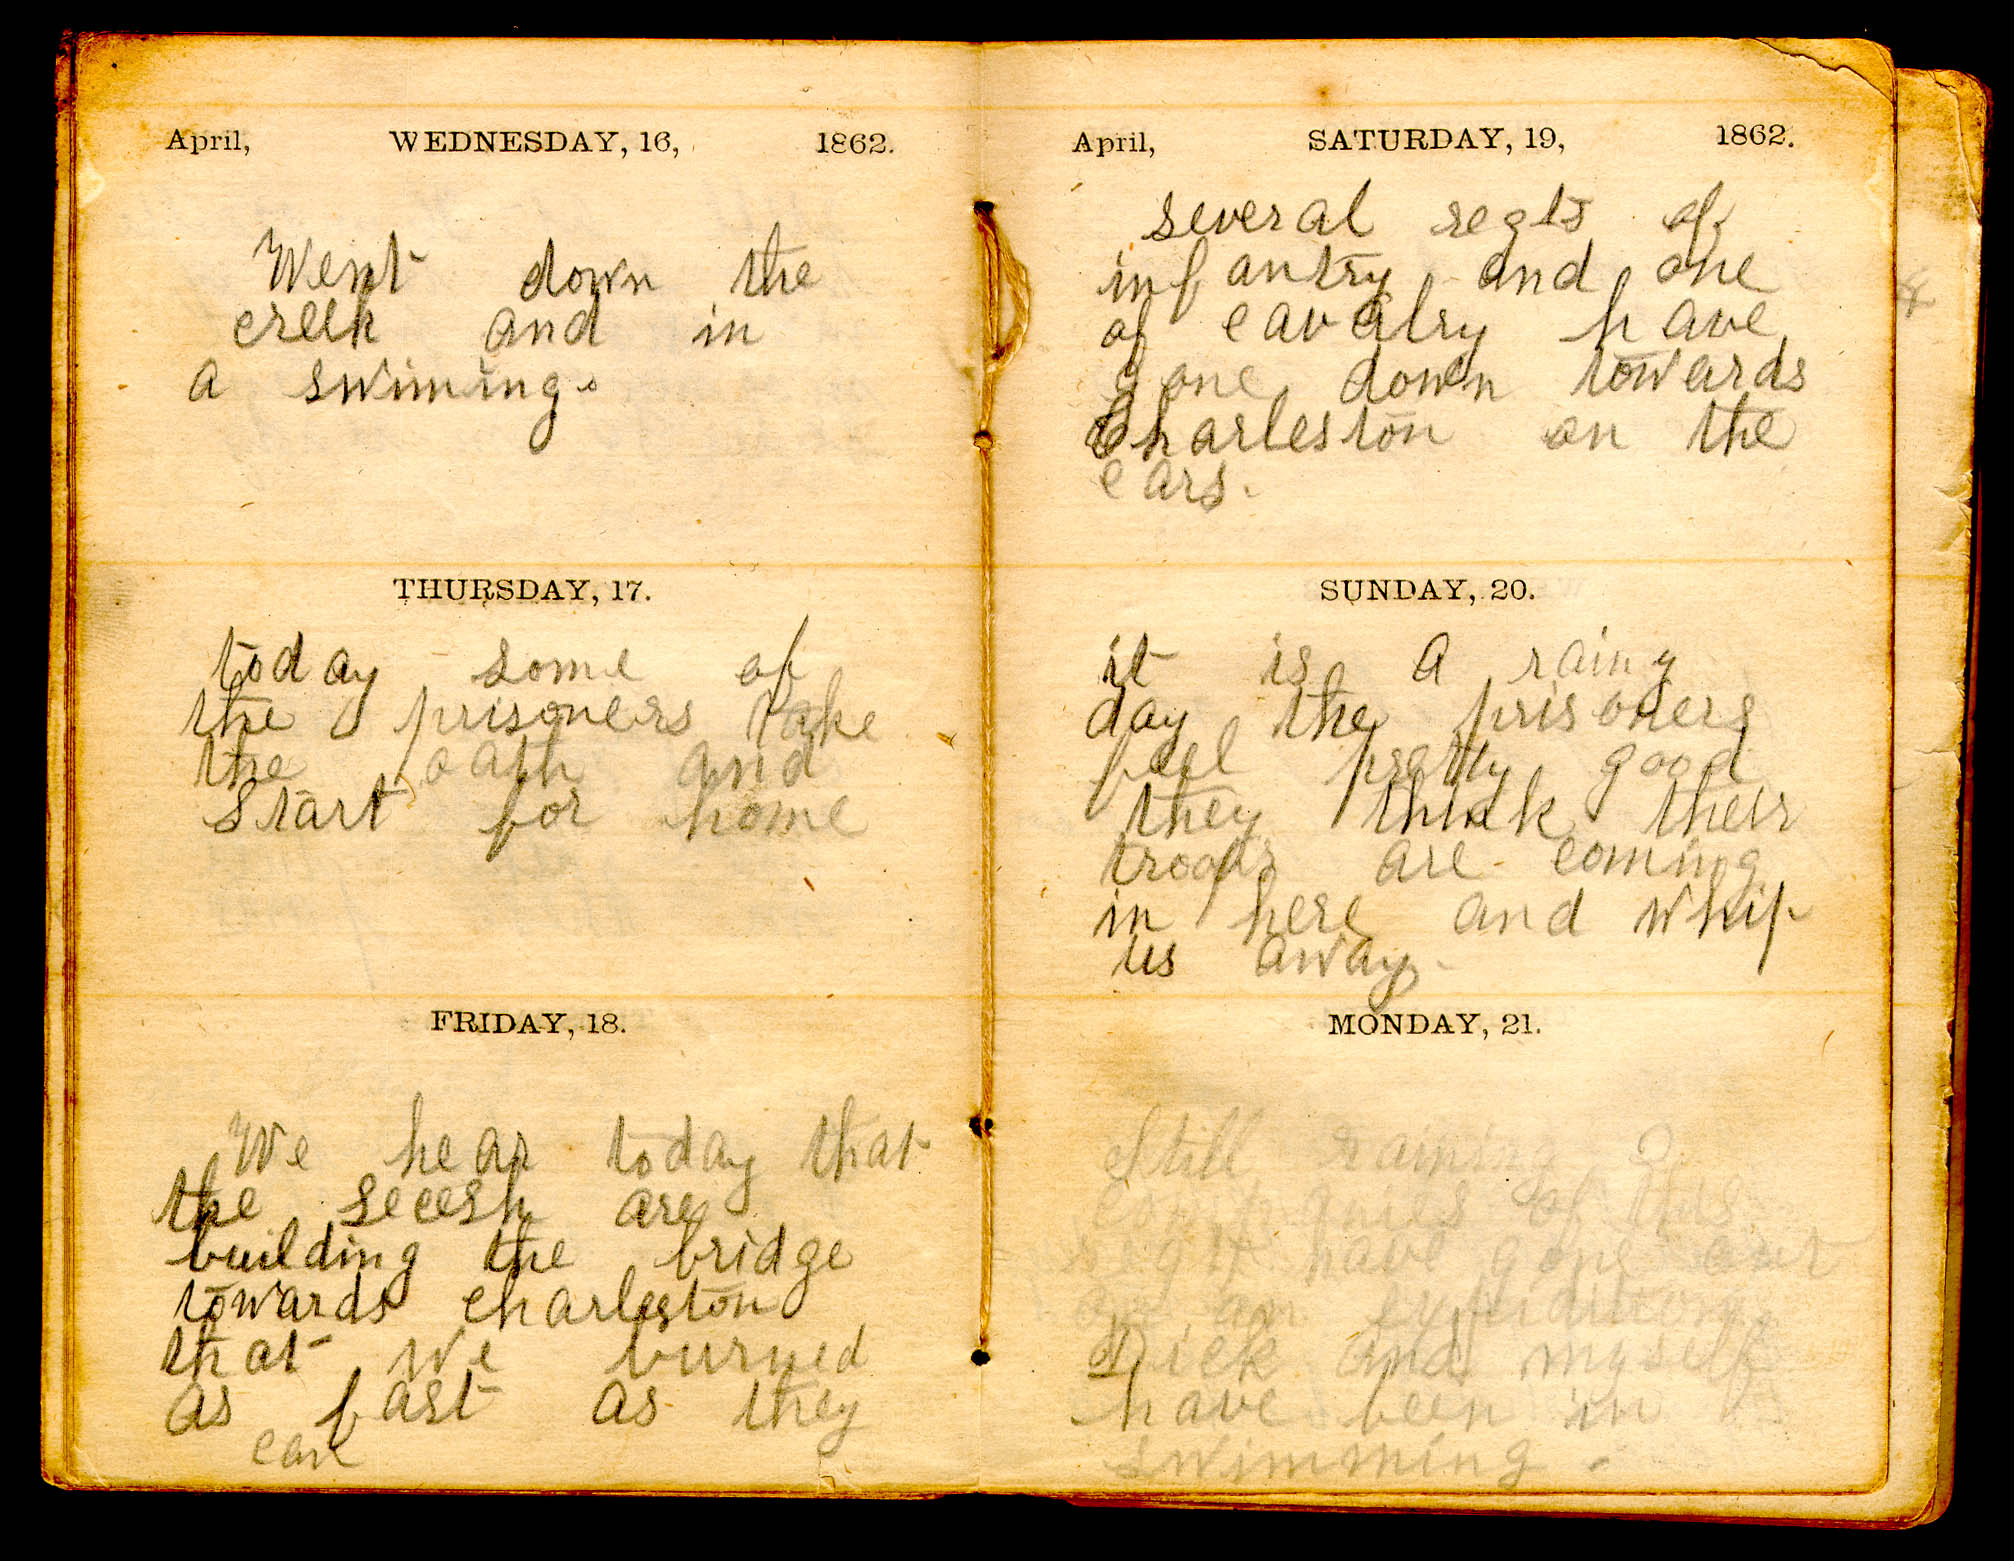 April, WEDNESDAY, 16, 1862.
Went down the
creek and in
a swiming.
THURSDAY, 17.
today some of
the prisoners take
the oath and
Start for home
FRIDAY, 18.
We hear today that
the secesh are
building the bridge
towards charleston
that we burned
as fast as they
can
April, SATURDAY, 19, 1862.
several regts of
infantry and one
of cavalry have
gone down towards
Charleston on the
cars.
SUNDAY, 20.
it is a rainy
day the prisoners
feel pretty good
they think their
troops are coming
in here and whip
us away.
MONDAY, 21.
Still raining 2
companies of this
regt have gone out
on an expidition
Dick and myself
have been in
swimming.